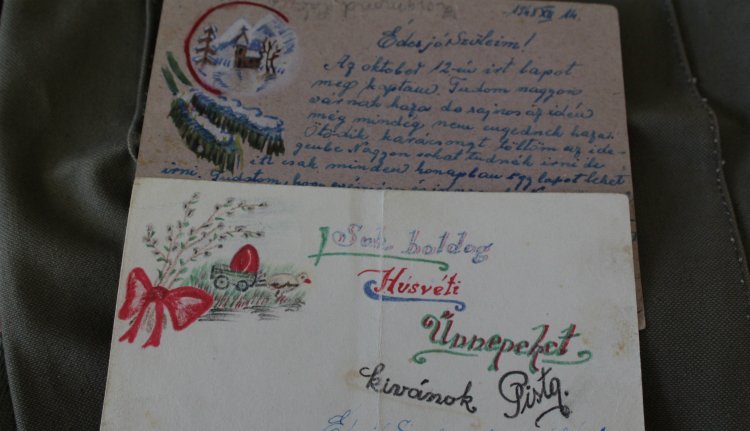 1948 XII 14.
Édes jó Szüleim!
Az október 12-én irt lapot
meg kaptam. Tudom nagyon
várnak haza de sajnos az idén
még mindég nem engednek haza.
Ötödik karácsonyt töltöm az ide-
genbe. Nagyon sokat tudnék irni de
itt csak minden honapban egy lapot lehet
irni.
Sok boldog
Húsvéti
Ünnepeket
kivánok Pista.